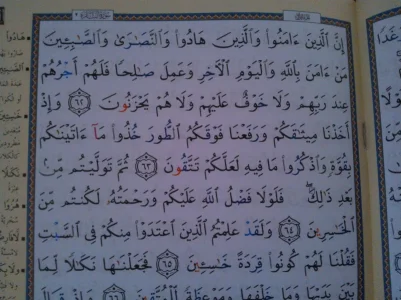 إِنَّ ٱلَّذِينَ ءَامَنُوا۟ وَٱلَّذِينَ هَادُوا۟ وَٱلنَّصَـٰرَىٰ وَٱلصَّـٰبِـِٔينَ
مَنْ ءَامَنَ بِٱللَّهِ وَٱلْيَوْمِ ٱلْـَٔاخِرِ وَعَمِلَ صَـٰلِحًا فَلَهُمْ أَجْرُهُمْ
عِندَ رَبِّهِمْ وَلَا خَوْفٌ عَلَيْهِمْ وَلَا هُمْ يَحْزَنُونَ ٦٢ وَإِذْ
أَخَذْنَا مِيثَـٰقَكُمْ وَرَفَعْنَا فَوْقَكُمُ ٱلطُّورَ خُذُوا۟ مَآ ءَاتَيْنَـٰكُم
بِقُوَّةٍ وَٱذْكُرُوا۟ مَا فِيهِ لَعَلَّكُمْ تَتَّقُونَ ٦٣ ثُمَّ تَوَلَّيْتُم مِّنۢ
بَعْدِ ذَٰلِكَ ۖ فَلَوْلَا فَضْلُ ٱللَّهِ عَلَيْكُمْ وَرَحْمَتُهُۥ لَكُنتُم مِّنَ
ٱلْخَـٰسِرِينَ ٦٤ وَلَقَدْ عَلِمْتُمُ ٱلَّذِينَ ٱعْتَدَوْا۟ مِنكُمْ فِى ٱلسَّبْتِ
فَقُلْنَا لَهُمْ كُونُوا۟ قِرَدَةً خَـٰسِـِٔينَ ٦٥ فَجَعَلْنَـٰهَا نَكَـٰلًا لِّمَا
بَيْنَ يَدَيْهَا وَمَا خَلْفَهَا وَمَوْعِظَةً لِّلْمُتَّقِينَ ٦٦ وَإِذْ قَالَ